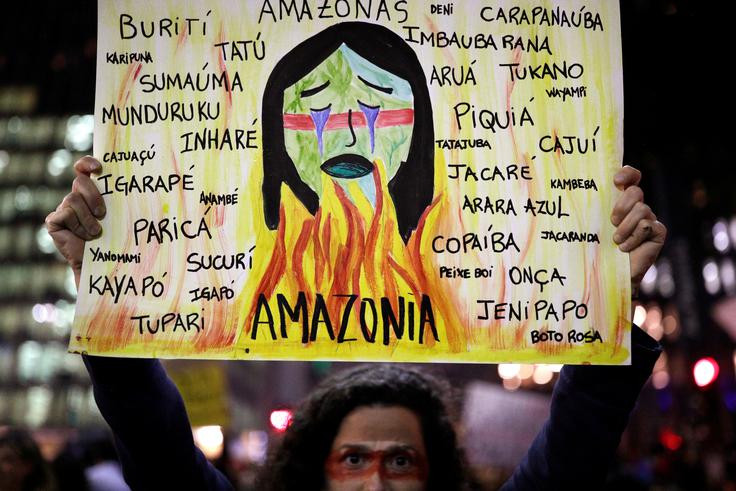 AMAZONAS
DENI
CARAPANAÚBA
BURITÍ
IMBAUBARANA
KARIPUNA
TATÚ
SUMAÚMA
ARUÁ
TUKANO
WAYAMPI
MUNDURUKU
PIQUIÁ
INHARÉ
TATAJUBA
CAJUÍ
CAJUAÇÚ
JACARÉ
IGARAPÉ
KAMBEBA
ANAMBÉ
ARARA AZUL
PARICÁ
COPAÍBA
JACARANDA
YANOMAMI
SUCURÍ
PEIXE BOI
ONÇA
KAYAPÓ
IGAPÓ
AMAZONIA
JENIPAPO
TUPARI
BOTO ROSA